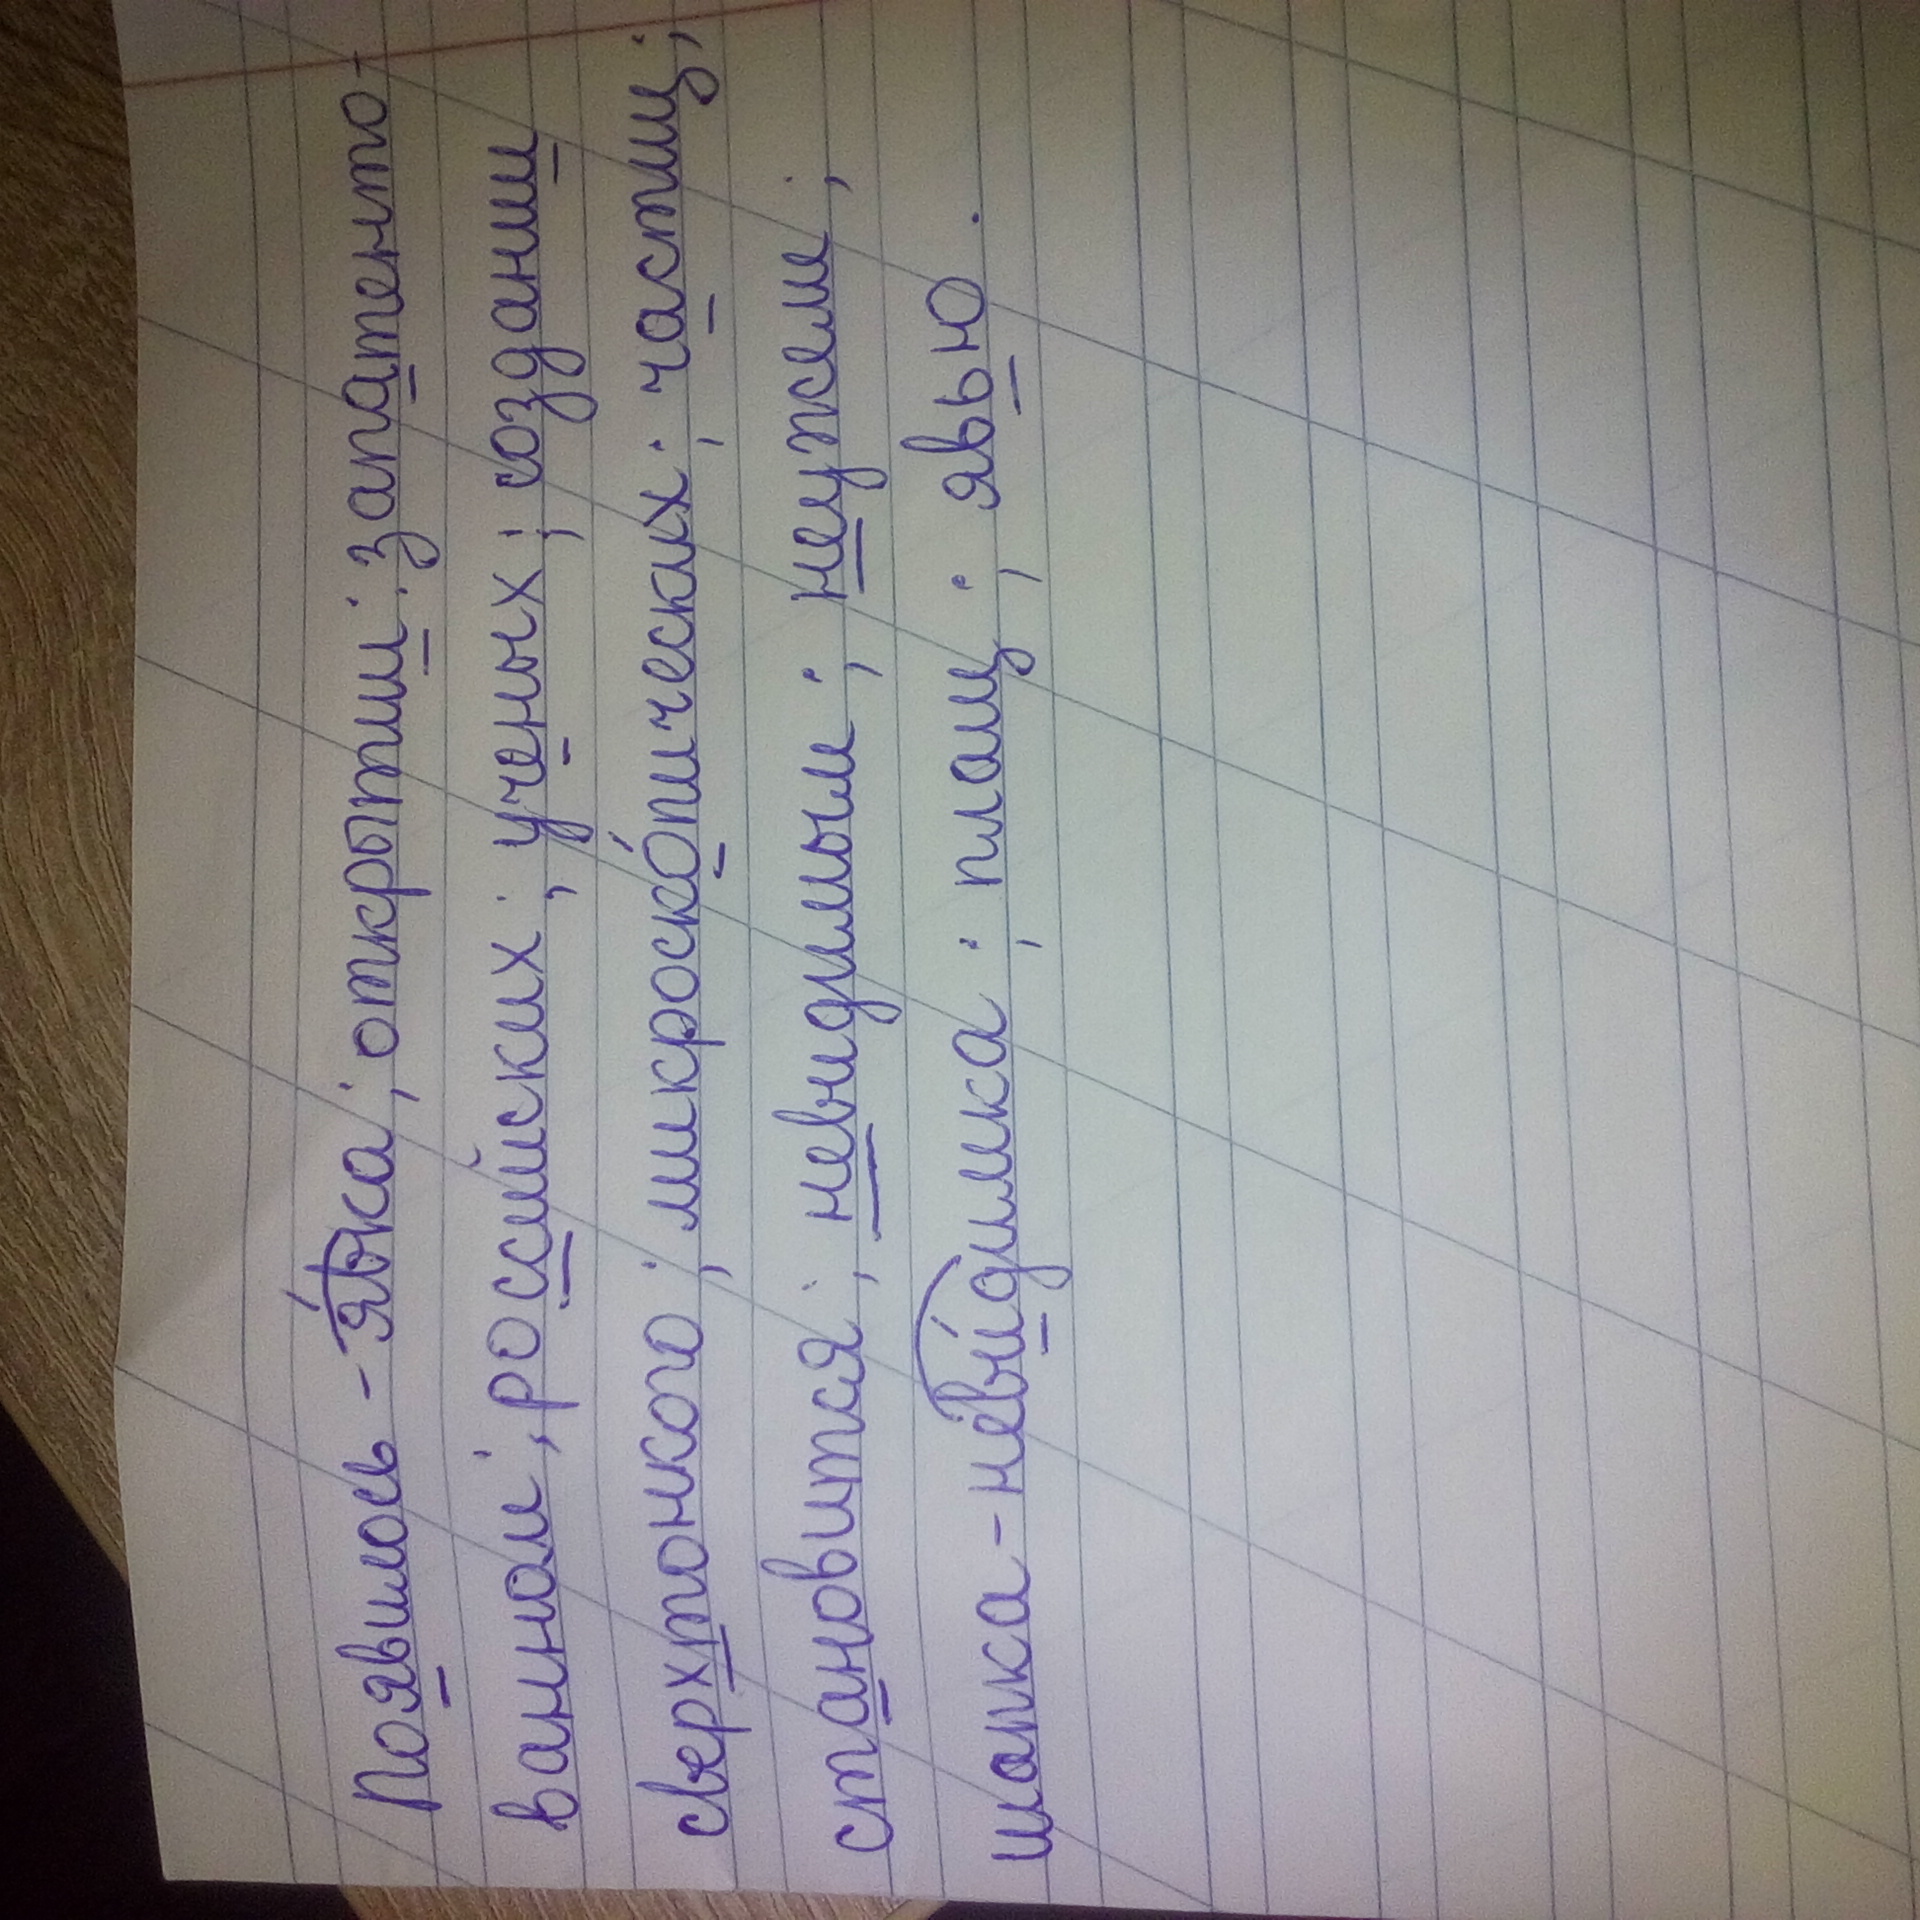 Появилось - я́вка; открытии; запатенто-
ванном; российских; ученых; создании
сверхтонкого; микроско́пических; частиц;
становится; невидимым; неужели;
шапка-неви́димка; плащ; явью.